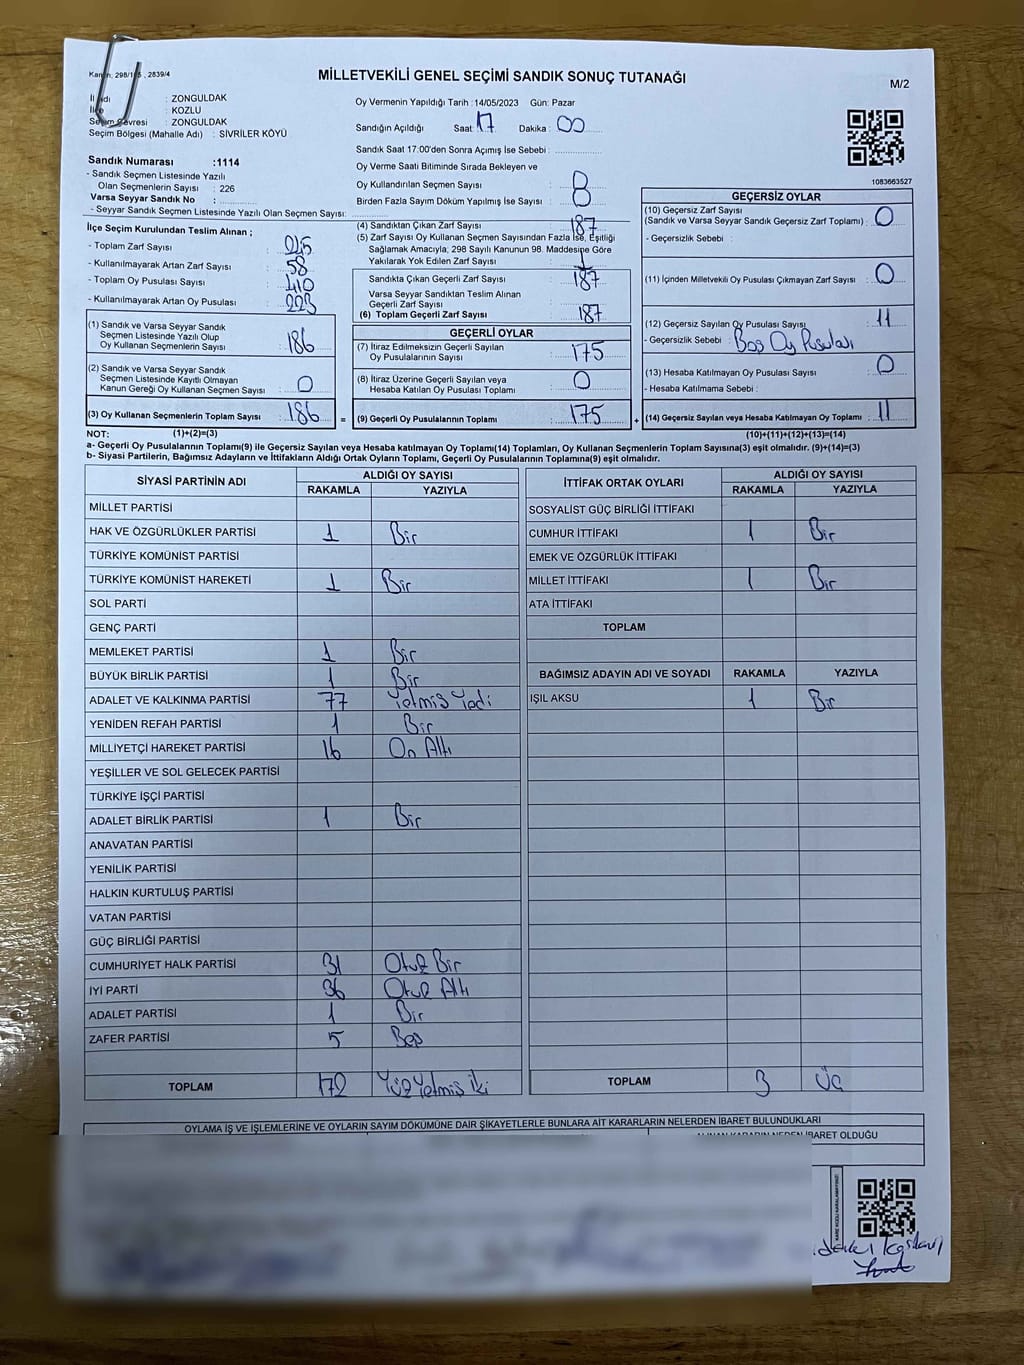 Kanun: 298/105, 2839/4
MİLLETVEKİLİ GENEL SEÇİMİ SANDIK SONUÇ TUTANAĞI
M/2
İl Adı : ZONGULDAK
İlçe : KOZLU
Seçim Çevresi : ZONGULDAK
Seçim Bölgesi (Mahalle Adı) : SİVRİLER KÖYÜ
Oy Vermenin Yapıldığı Tarih : 14/05/2023 Gün: Pazar
Sandığın Açıldığı Saat: 17 Dakika: 00
Sandık Saat 17:00'den Sonra Açımış İse Sebebi :
Oy Verme Saati Bitiminde Sırada Bekleyen ve
Oy Kullandırılan Seçmen Sayısı : 0
Birden Fazla Sayım Döküm Yapılmış İse Sayısı : 0
1083663527
Sandık Numarası :1114
- Sandık Seçmen Listesinde Yazılı
Olan Seçmenlerin Sayısı : 226
Varsa Seyyar Sandık No :
- Seyyar Sandık Seçmen Listesinde Yazılı Olan Seçmen Sayısı:
İlçe Seçim Kurulundan Teslim Alınan ;
- Toplam Zarf Sayısı : 245
- Kullanılmayarak Artan Zarf Sayısı : 58
- Toplam Oy Pusulası Sayısı : 410
- Kullanılmayarak Artan Oy Pusulası : 223
(1) Sandık ve Varsa Seyyar Sandık
Seçmen Listesinde Yazılı Olup
Oy Kullanan Seçmenlerin Sayısı : 186
(2) Sandık ve Varsa Seyyar Sandık
Seçmen Listesinde Kayıtlı Olmayan
Kanun Gereği Oy Kullanan Seçmen Sayısı : 0
(3) Oy Kullanan Seçmenlerin Toplam Sayısı : 186 =
(4) Sandıktan Çıkan Zarf Sayısı : 187
(5) Zarf Sayısı Oy Kullanan Seçmen Sayısından Fazla İse, Eşitliği
Sağlamak Amacıyla; 298 Sayılı Kanunun 98. Maddesine Göre
Yakılarak Yok Edilen Zarf Sayısı : 1
Sandıkta Çıkan Geçerli Zarf Sayısı : 187
Varsa Seyyar Sandıktan Teslim Alınan
Geçerli Zarf Sayısı :
(6) Toplam Geçerli Zarf Sayısı : 187
GEÇERLİ OYLAR
(7) İtiraz Edilmeksizin Geçerli Sayılan
Oy Pusulalarının Sayısı : 175
(8) İtiraz Üzerine Geçerli Sayılan veya
Hesaba Katılan Oy Pusulası Toplamı : 0
(9) Geçerli Oy Pusulalarının Toplamı : 175 +
GEÇERSİZ OYLAR
(10) Geçersiz Zarf Sayısı
(Sandık ve Varsa Seyyar Sandık Geçersiz Zarf Toplamı) : 0
- Geçersizlik Sebebi :
(11) İçinden Milletvekili Oy Pusulası Çıkmayan Zarf Sayısı : 0
(12) Geçersiz Sayılan Oy Pusulası Sayısı : 11
- Geçersizlik Sebebi : Boş Oy Pusulası
(13) Hesaba Katılmayan Oy Pusulası Sayısı : 0
- Hesaba Katılmama Sebebi :
(14) Geçersiz Sayılan veya Hesaba Katılmayan Oy Toplamı : 11
NOT: (1)+(2)=(3) (10)+(11)+(12)+(13)=(14)
a- Geçerli Oy Pusulalarının Toplamı(9) ile Geçersiz Sayılan veya Hesaba katılmayan Oy Toplamı(14) Toplamları, Oy Kullanan Seçmenlerin Toplam Sayısına(3) eşit olmalıdır. (9)+(14)=(3)
b- Siyasi Partilerin, Bağımsız Adayların ve İttifakların Aldığı Ortak Oyların Toplamı, Geçerli Oy Pusulalarının Toplamına(9) eşit olmalıdır.
SİYASİ PARTİNİN ADI ALDIĞI OY SAYISI
RAKAMLA YAZIYLA
MİLLET PARTİSİ
HAK VE ÖZGÜRLÜKLER PARTİSİ 1 Bir
TÜRKİYE KOMÜNİST PARTİSİ
TÜRKİYE KOMÜNİST HAREKETİ 1 Bir
SOL PARTİ
GENÇ PARTİ
MEMLEKET PARTİSİ 1 Bir
BÜYÜK BİRLİK PARTİSİ 1 Bir
ADALET VE KALKINMA PARTİSİ 77 Yetmiş Yedi
YENİDEN REFAH PARTİSİ 1 Bir
MİLLİYETÇİ HAREKET PARTİSİ 16 On Altı
YEŞİLLER VE SOL GELECEK PARTİSİ
TÜRKİYE İŞÇİ PARTİSİ
ADALET BİRLİK PARTİSİ 1 Bir
ANAVATAN PARTİSİ
YENİLİK PARTİSİ
HALKIN KURTULUŞ PARTİSİ
VATAN PARTİSİ
GÜÇ BİRLİĞİ PARTİSİ
CUMHURİYET HALK PARTİSİ 31 Otuz Bir
İYİ PARTİ 36 Otuz Altı
ADALET PARTİSİ 1 Bir
ZAFER PARTİSİ 5 Beş
TOPLAM 172 Yüz Yetmiş iki
İTTİFAK ORTAK OYLARI ALDIĞI OY SAYISI
RAKAMLA YAZIYLA
SOSYALİST GÜÇ BİRLİĞİ İTTİFAKI
CUMHUR İTTİFAKI 1 Bir
EMEK VE ÖZGÜRLÜK İTTİFAKI
MİLLET İTTİFAKI 1 Bir
ATA İTTİFAKI
TOPLAM
BAĞIMSIZ ADAYIN ADI VE SOYADI RAKAMLA YAZIYLA
IŞIL AKSU 1 Bir
TOPLAM 3 Üç
OYLAMA İŞ VE İŞLEMLERİNE VE OYLARIN SAYIM DÖKÜMÜNE DAİR ŞİKAYETLERLE BUNLARA AİT KARARLARIN NELERDEN İBARET BULUNDUKLARI
İBARET OLDUĞU
KARE KODU KARALAMAYINIZ!